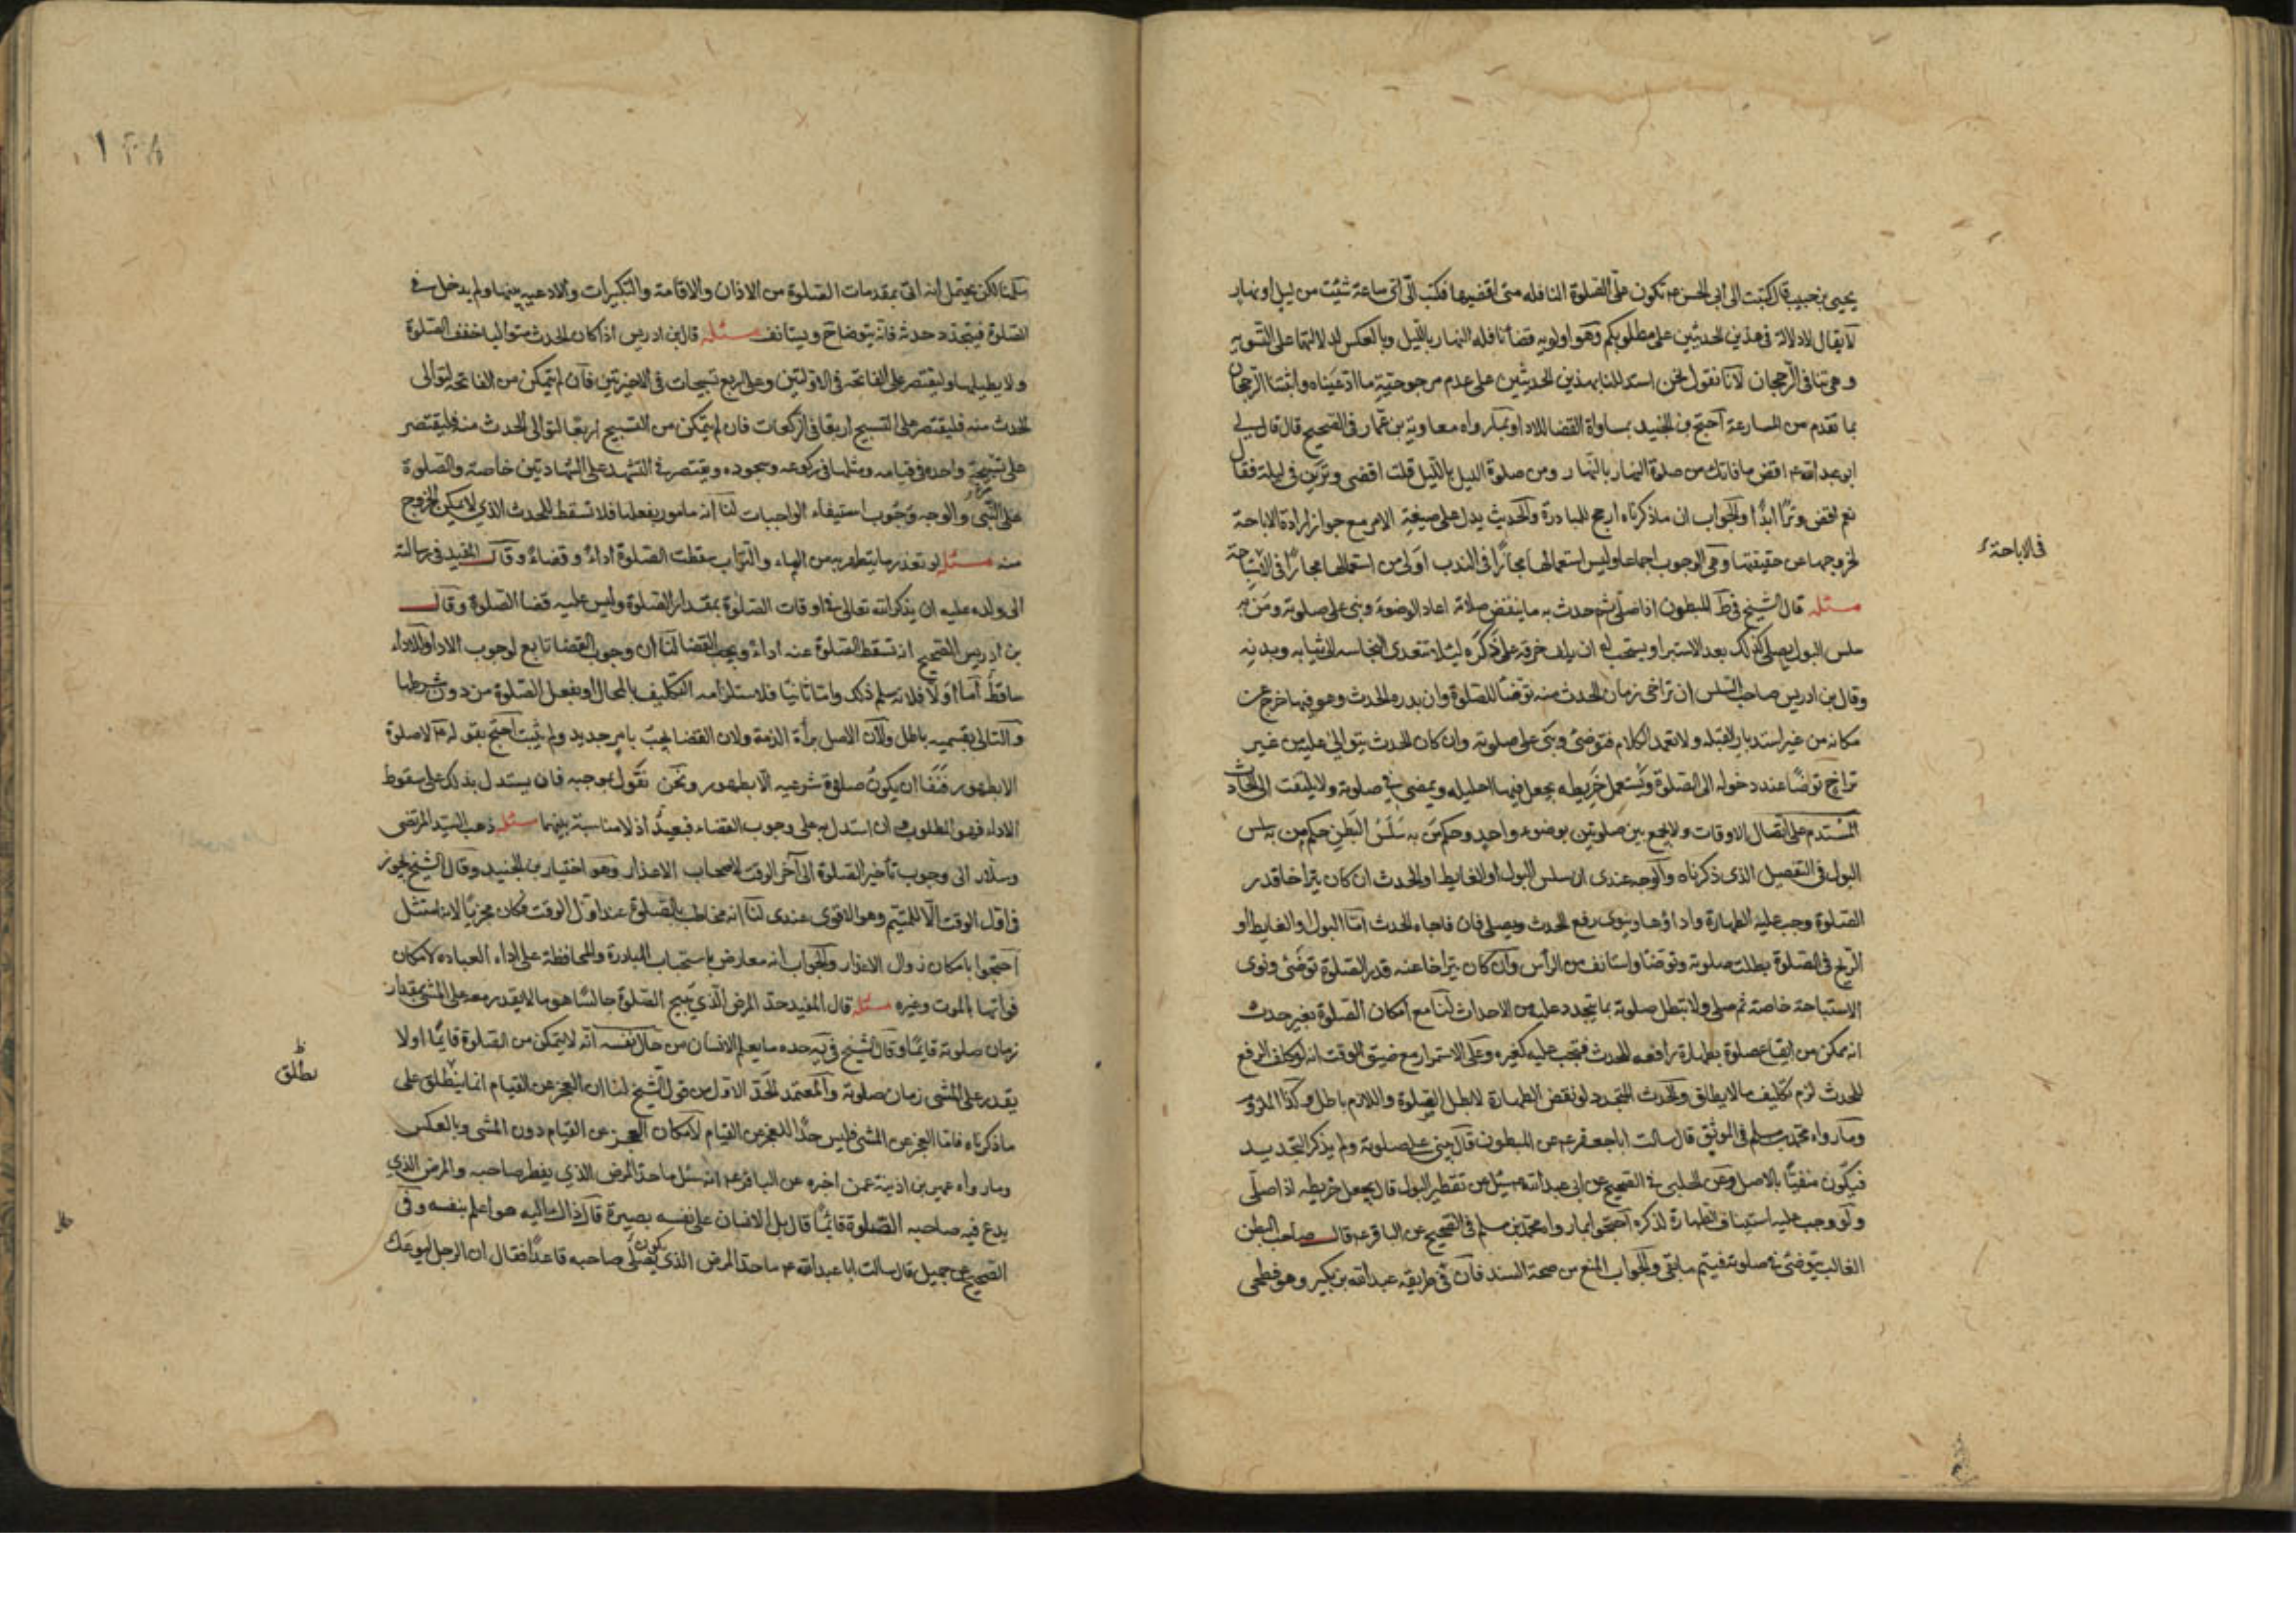 يحيى بن حبيب قال كتبت الى ابى الحسن ع تكون علىّ الصلوة النافله متى اقضيها فكتب الىّ اىّ ساعة شئت من ليل او نهار
لا يقال لا دلالة فى هذين الحديثين على مطلوبكم وهو اولويه قضا نافله النهار بالليل وبالعكس لدلالتهما على التسويه
وهى تنافى الرجحان لانا نقول نحن استدللنا بهذين الحديثين على عدم مرجوحيّة ما ادّعيناه واثبتنا الرجحان
بما تقدم من المسارعة احتج بن الجنيد بمساواة القضا للاداء وبما رواه معاوية بن عمّار فى الصحيح قال قال لى
ابو عبد الله ع اقض ما فاتك من صلوة النهار بالنهار ومن صلوة الليل بالليل قلت اقضى وترين فى ليلة فقال
نعم اقض وترًا ابدًا والجواب ان ما ذكرناه ارجح للمبادرة والحديث يدل على صيغة الامر مع جواز ارادة الاباحة
لخروجها عن حقيقتها وهى الوجوب اجماعا وليس استعمالها مجازًا فى الندب اولى من استعمالها مجازًا فى الاباحة
فى الاباحة
مسئله قال الشيخ فى ط المبطون اذا صلّى ثم حدث به ما ينقض صلاته اعاد الوضوء وبنى على صلوته ومن به
سلس البول يصلى كذلك بعد الاستبراء ويستحب له ان يلف خرقة على ذكره لئلا تتعدى النجاسه الى ثيابه وبدنه
وقال بن ادريس صاحب السلس ان تراخى زمان الحدث منه توضّا للصلوة وان بدره الحدث وهو فيها خرج عن
مكانه من غير استدبار القبله ولا تعمد الكلام فتوضئ وبنى على صلوته وان كان الحدث يتوالى عليه من غير
تراخ توضّا عند دخوله الى الصلوة ويستعمل خريطه يجعل فيها احليله ويمضى فى صلوته ولا يلتفت الى الحادث
المستدم على اتصال الاوقات ولا يجمع بين صلوتين بوضوء واحد وحكم من به سلس البطن حكم من به سلس
البول فى التفصيل الذى ذكرناه والوجه عندى ان سلس البول او الغايط او الحدث ان كان يتراخا قدر
الصلوة وجب عليه الطهارة واداؤها وينوى رفع الحدث ويصلى فان فاجاه الحدث امّا البول او الغايط او
الريح فى الصلوة بطلت صلوته وتوضّا واستانف من الرأس وان كان يتراخا عنه قدر الصلوة توضئ ونوى
الاستباحة خاصة ثم صلى ولا تبطل صلوته بما يتجدد عليه من الاحداث لنا مع امكان الصلوة بغير حدث
انه يمكن من ايقاع صلوة بطهارة رافعه للحدث فتجب عليه كغيره وعلى الاستمرار مع ضيق الوقت انه لو كلف الرفع
للحدث لزم تكليف ما لا يطاق والحدث المتجدد لو نقض الطهارة لابطل الصلوة واللازم باطل فكذا الملزوم
وما رواه محمد بن مسلم فى الموثق قال سالت ابا جعفر ع عن المبطون قال يبنى على صلوته ولم يذكر التجديد
فيكون منفيًا بالاصل وعن الحلبى فى الصحيح عن ابى عبد الله ع سئل عن تقطير البول قال يجعل خريطه اذا صلّى
ولو وجب عليه استيناف الطهارة لذكره احتجوا بما رواه محمد بن مسلم فى الصحيح عن الباقر ع قال صاحب البطن
الغالب يتوضئ فى صلوته فيتم ما بقى والجواب المنع من صحة السند فان فى طريقه عبد الله بن بكير وهو فطحى
سلمنا لكن يحتمل انه اتى بمقدمات الصلوة من الاذان والاقامة والتكبيرات والادعيه بينها ولم يدخل فى
الصلوة فيتجدد حدثه فانه يتوضا ح ويستانف مسئله قال بن ادريس اذا كان الحدث متواليا خفف الصلوة
ولا يطيلها وليقتصر على الفاتحه فى الاولتين وعلى اربع تسبيحات فى الاخيرتين فان لم يتمكن من الفاتحه لتوالى
الحدث منه فليقتصر على التسبيح اربعا فى الركعات فان لم يتمكن من التسبيح اربعا لتوالى الحدث منه فليقتصر
على تسبيحة واحده فى قيامه ومثلها فى ركوعه وسجوده ويقتصر فى التشهد على الشهادتين خاصة والصلوة
على النّبى والوجه وجوب استيفاء الواجبات لنا انه مامور بفعلها فلا تسقط للحدث الذى لا يمكن الخروج
منه مسئله لو تعذر ما يتطهر به من الماء والتراب سقطت الصلوة اداءً وقضاءً وقال المفيد فى رسالته
الى ولده عليه ان يذكر الله تعالى فى اوقات الصلوة بمقدار الصلوة وليس عليه قضا الصلوة وقال
بن ادريس الصحيح انه تسقط الصلوة عنه اداءً ويجب القضا لنا ان وجوب القضا تابع لوجوب الاداء والاداء
ساقط اما اوّلا فلانه سلم ذلك وامّا ثانيًا فلاستلزامه التكليف بالمحال او بفعل الصلوة من دون شرطها
والتالى بقسميه باطل ولان الاصل براة الذمة ولان القضا يجب بامر جديد ولم يثبت احتج بقوله ع لا صلوة
الا بطهور فنفا ان يكون صلوة شرعيه الّا بطهور ونحن نقول بموجبه فان يستدل بذلك على سقوط
الاداء فهو المطلوب وان استدل به على وجوب القضاء فبعيدٌ اذ لا مناسبة بينهما مسئله ذهب السيّد المرتضى
وسلار الى وجوب تأخير الصلوة الى آخر الوقت لاصحاب الاعذار وهو اختيار بن الجنيد وقال الشيخ يجوز
فى اول الوقت الّا للمتيمّم وهو الاقوى عندى لنا انه مخاطب بالصلوة عند اوّل الوقت فكان مجزيًا لانه امتثل
احتجوا بامكان زوال الاعذار والجواب انه معارض باستحباب المبادرة والمحافظة على اداء العباده لامكان
فواتها بالموت وغيره مسئله قال المفيد حدّ المرض الّذى يبيح الصلوة جالسًا هو ما لا يقدر معه على المشى بمقدار
زمان صلوته قايمًا وقال الشيخ فى يه حده ما يعلم الانسان من حال نفسه انّه لا يتمكن من الصلوة قايمًا او لا
يقدر على المشى زمان صلوته والمعتمد الحدّ الاول من قول الشيخ لنا ان العجز عن القيام انما ينطلق على
يطلق
ما ذكرناه فامّا العجز عن المشى فليس حدًا للعجز عن القيام لامكان العجز عن القيام دون المشى وبالعكس
وما رواه عمر بن اذينة عمن اخبره عن الباقر ع انه سئل ما حدّ المرض الذى يفطر صاحبه والمرض الذى
يدع فيه صاحبه الصلوة قايمًا قال بل الانسان على نفسه بصيرة قال ذاك اليه هو اعلم بنفسه وفى
الصحيح عن جميل قال سالت ابا عبد الله ع ما حدّ المرض الذى يصلى صاحبه قاعدًا فقال ان الرجل ليوعك